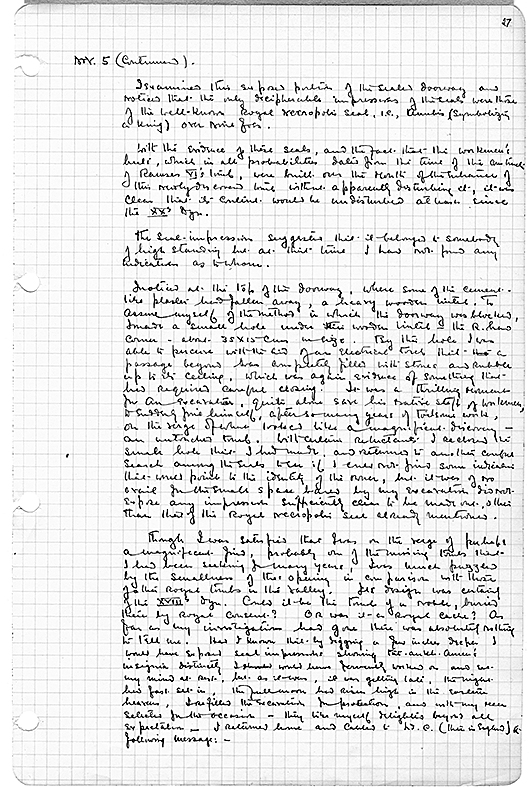 27
Nov. 5 (Continued).
I examined this exposed portion of the sealed doorway and
noticed that the only decipherable impressions of the seals were those
of the well-known Royal Necropolis seal, i.e., Anubis (symbolizing
a King) over nine foes.
With the evidence of these seals, and the fact that the workmen's
huts, which in all probabilities date from the time of the
of Ramses VI's tomb, were built over the mouth of the entrance of
this newly discovered tomb without apparently disturbing it, it was
clear that its content would be undisturbed at least since
the XXth Dyn.
The seal-impression suggested that it belonged to somebody
of high standing but at that time I had not found any
indication as to whom.
I noticed at the top of the doorway, where some of the cement-
like plaster had fallen away, a heavy wooden lintel. To
assure myself of the method in which the doorway was blocked,
I made a small hole under this wooden lintel - the R. hand
corner - about 35 X 15 cms in size. By this hole I was
able to perceive with the aid of an electrical torch that a
passage beyond was completely filled with stones and rubble
up to its ceiling, which was again evidence of something that
had required careful closing. It was a thrilling moment
for an excavator, quite alone save his native staff of workmen,
to suddenly find himself, after so many years of toilsome work,
on the verge of what looked like a magnificent discovery -
an untouched tomb. With certain reluctance I reclosed the
small hole that I had made, and returned to another careful
search among the seals to see if I could not find some indication
that would point to the identity of the owner, but it was of no
avail for the small space bared by my excavation did not
expose any impression sufficiently clear to be made out, other
than that of the Royal necropolis seal already mentioned.
Though I was satisfied that I was on the verge of perhaps
a magnificent find, probably one of the missing tombs that
I had been seeking for many years, I was much puzzled
by the smallness of the opening in comparison with those
of other Royal tombs in the valley. Its design was certainly
of the XVIIIth Dyn. Could it be the tomb of a noble, buried
there by Royal consent? Or was it a Royal cache? As
far as my investigations had gone there was absolutely nothing
to tell me. Had I known that by digging a few inches deeper I
would have exposed seal impressions showing Tut.ankh.Amen's
insignia distinctly I would have fervently worked on and set
my mind at rest, but as it was, it was getting late, the night
had fast set in, the full moon had risen high in the eastern
heavens, I refilled the excavation for protection, and with my men
selected for the occasion - they like myself delighted beyond all
expectation - I returned home and cabled to Ld. C. (then in England) the
following message: -